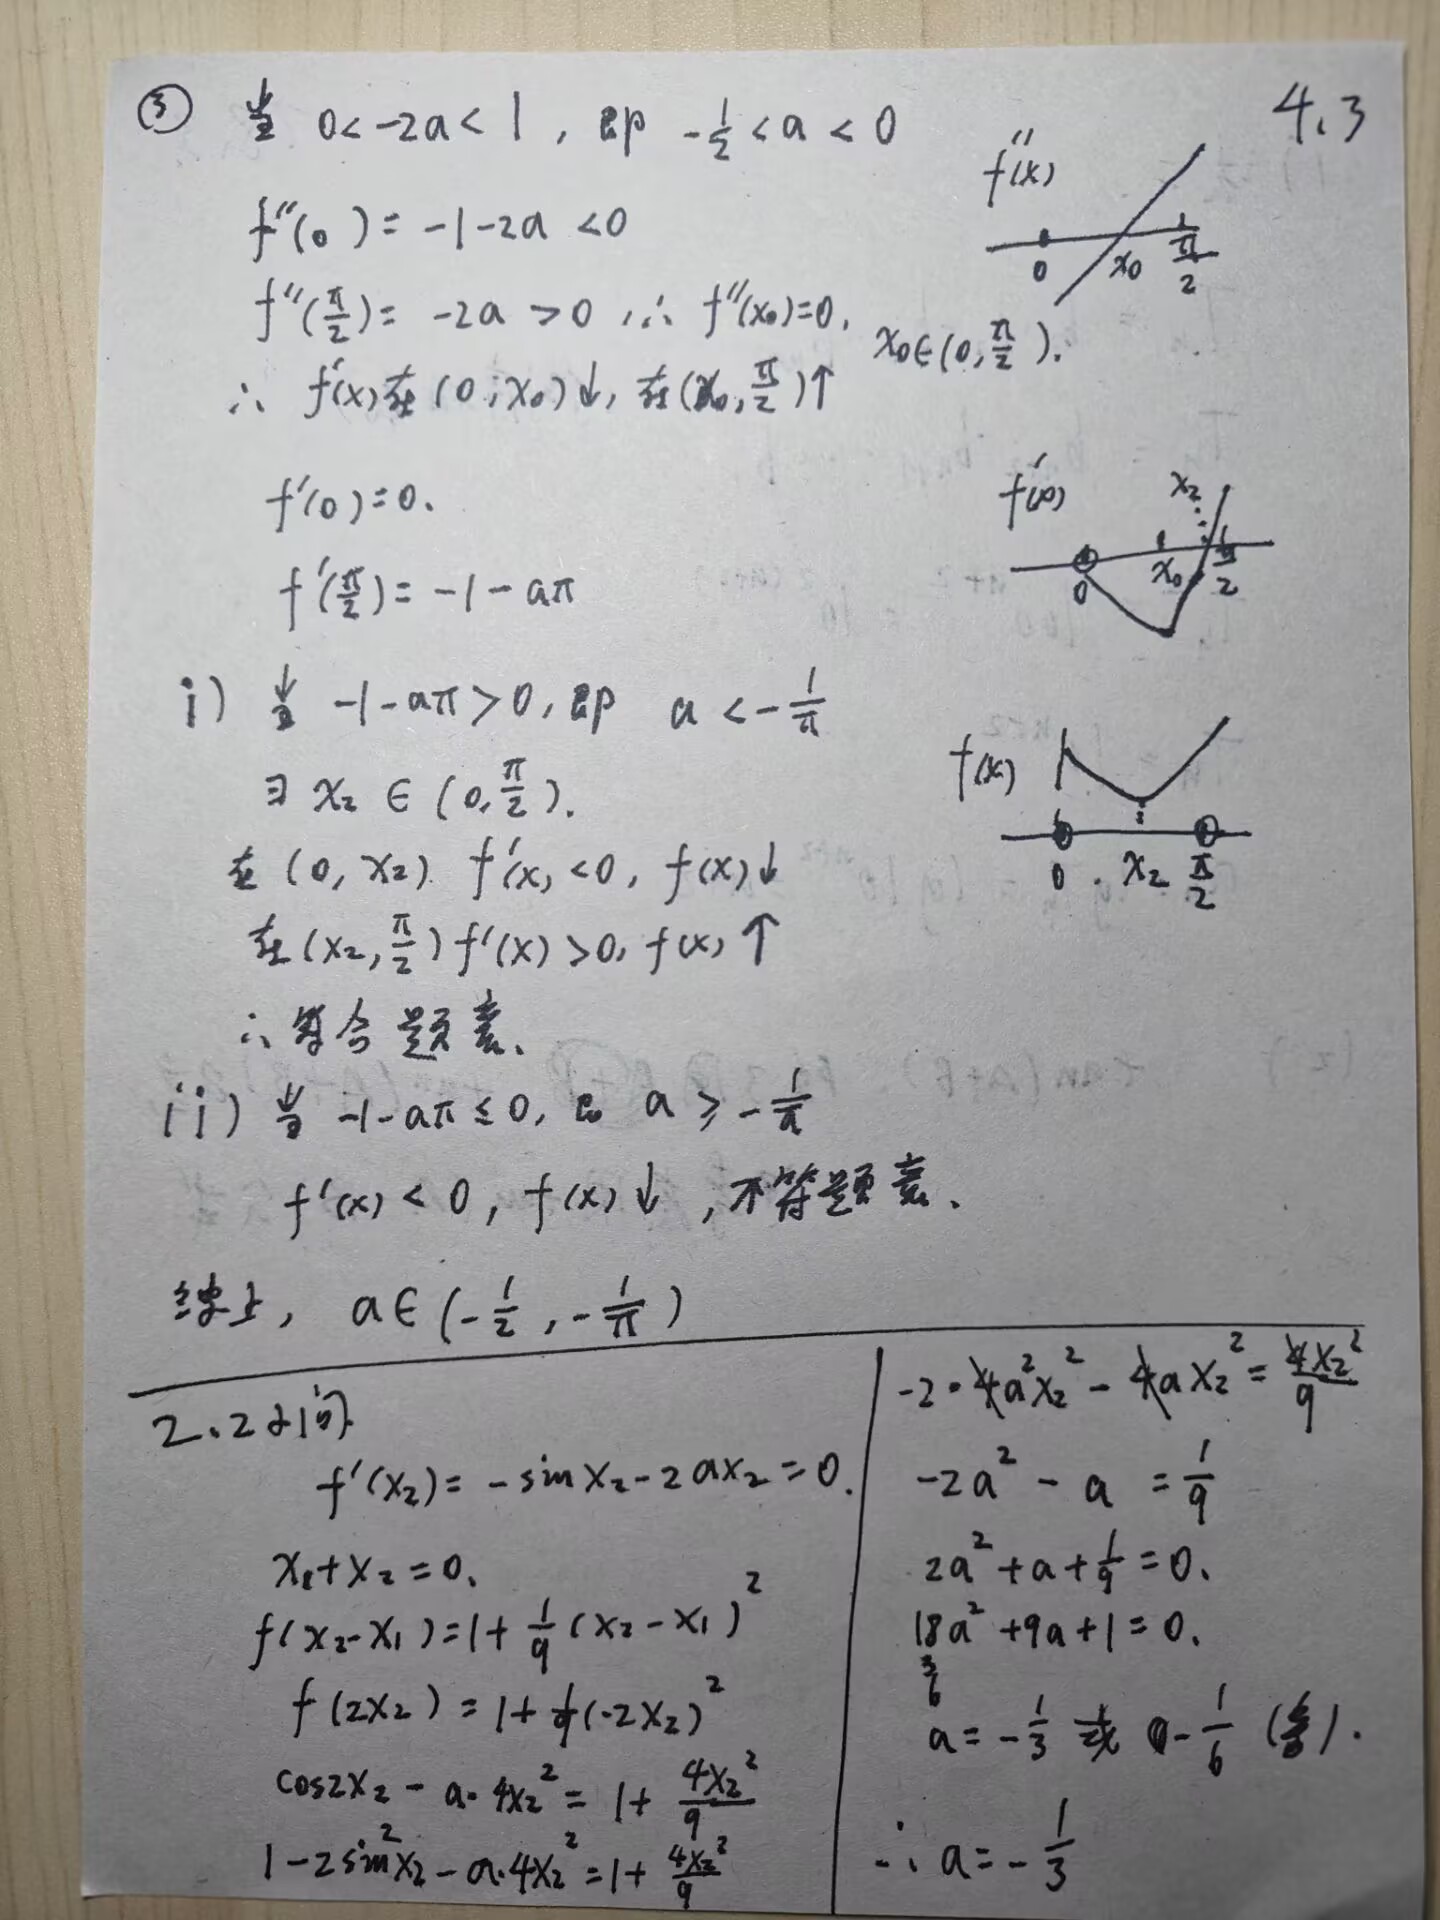 4.3
③ 当 0<-2a<1, 即 -1/2<a<0
f''(0)=-1-2a<0
f''(π/2)=-2a>0, ∴ f''(x₀)=0, x₀∈(0,π/2).
∴ f'(x)在(0,x₀)↓, 在(x₀,π/2)↑
f''(x)
0 x₀ π/2
f'(0)=0.
f'(π/2)=-1-aπ
f'(x)
x₂
0 x₀ π/2
i) 当 -1-aπ>0, 即 a<-1/π
∃ x₂∈(0,π/2).
在(0,x₂) f'(x)<0, f(x)↓
在(x₂,π/2) f'(x)>0, f(x)↑
∴ 符合题意.
f(x)
0 x₂ π/2
ii) 当 -1-aπ≤0, 即 a≥-1/π
f'(x)<0, f(x)↓, 不符题意.
综上, a∈(-1/2,-1/π)
2.2小问
f'(x₂)=-sinx₂-2ax₂=0.
x₁+x₂=0.
f(x₂-x₁)=1+1/9(x₂-x₁)²
f(2x₂)=1+1/9(-2x₂)²
cos2x₂-a·4x₂²=1+4x₂²/9
1-2sin²x₂-a·4x₂²=1+4x₂²/9
-2·4a²x₂²-4ax₂²=4x₂²/9
-2a²-a=1/9
2a²+a+1/9=0.
18a²+9a+1=0.
3
6
a=-1/3 或 -1/6 (舍).
∴ a=-1/3